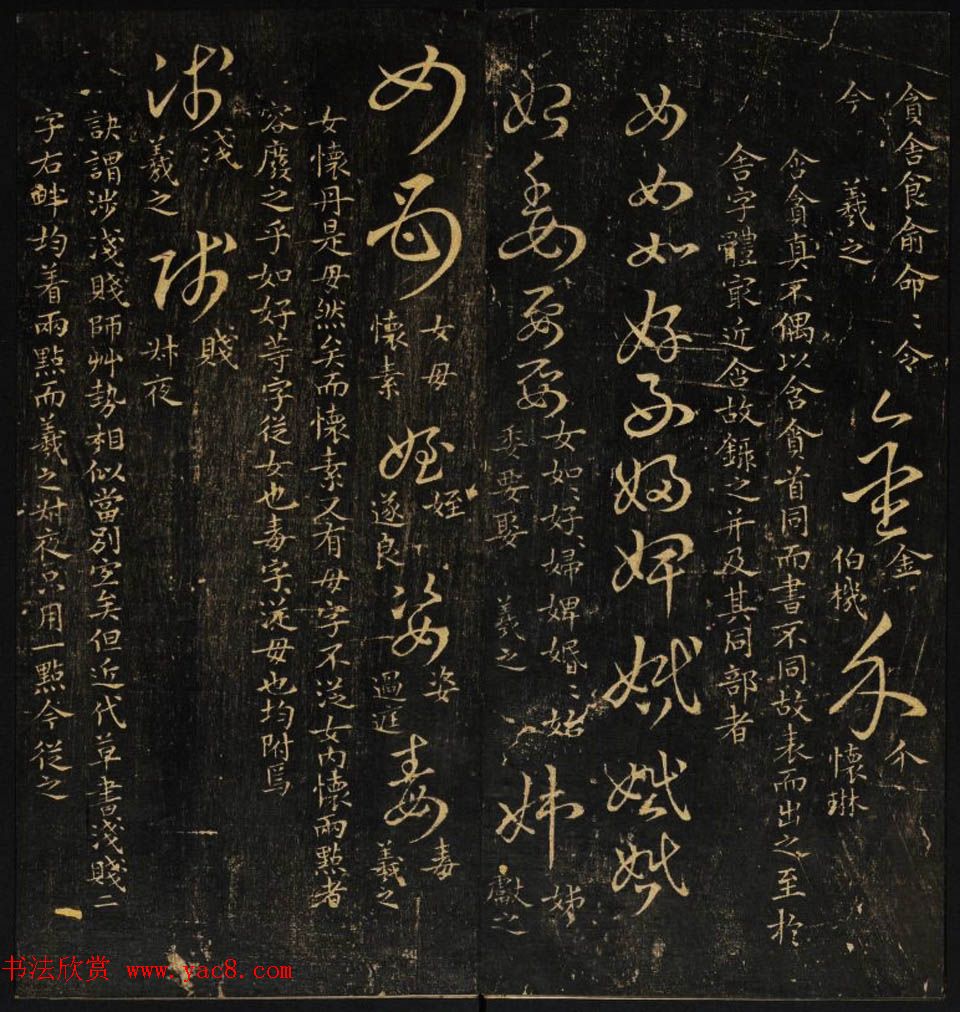 貪舍食俞命〻令
今 羲之
亼 金 金 伯機 尒 尒 懷琳
含貪真不偶以含貪首同而書不同故表而出之至於
舍字體冣近含故錄之并及其同部者
女女如好好婦婢婚婚
始委要娶
女如〻好〻婦婢婚〻始
委要娶 羲之
姊 姊 獻之
女母
女母 懷素
姪 姪 遂良
姿 姿 過庭
毒 毒 羲之
女懷丹是毋然矣而懷素又有母字不從女内懷兩點者
容廢之乎如好等字從女也毒字從母也均附焉
淺 淺 羲之
賤 賤 叔夜
訣謂涉淺賤師艸勢相似當別定矣但近代草書淺賤二
字右畔均着兩點而羲之叔夜只用一點今從之
书法欣赏 www.yac8.com